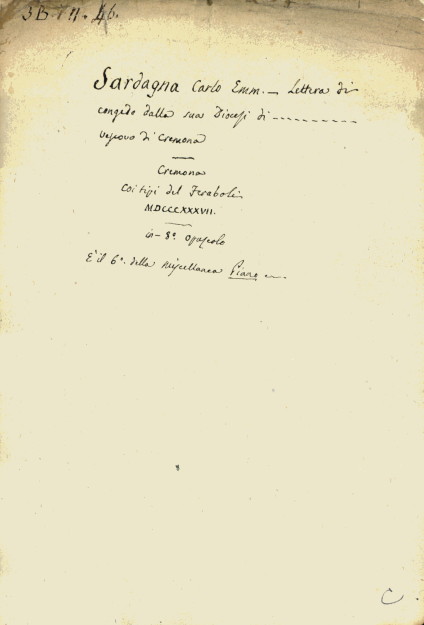 3B. 11. 46.
Sardagna Carlo Emm. — Lettera di
congedo dalla sua Diocesi di ----------
Vescovo di Cremona
Cremona
Coi tipi del Feraboli
MDCCCXXXVII.
in-8º opuscolo
È il 6º. della miscellanea Piano
C.